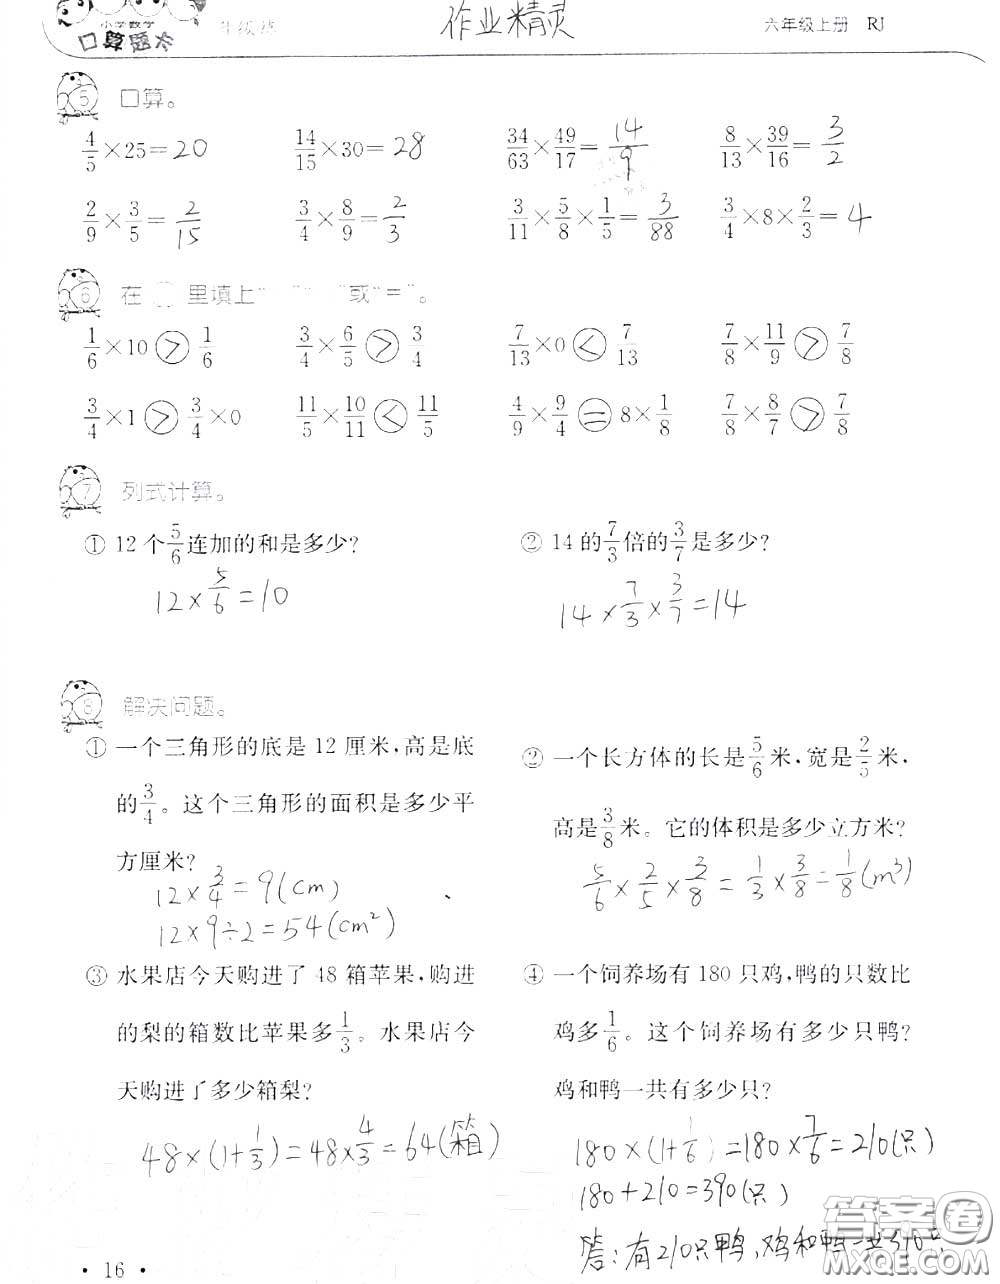 小学数学
口算题卡
作业精灵
六年级上册 RJ
5 口算。
4/5×25=20 14/15×30=28 34/63×49/17=14/9 8/13×39/16=3/2
2/9×3/5=2/15 3/4×8/9=2/3 3/11×5/8×1/5=3/88 3/4×8×2/3=4
6 在 里填上“ ” “ ”或“=”。
1/6×10>1/6 3/4×6/5>3/4 7/13×0<7/13 7/8×11/9>7/8
3/4×1>3/4×0 11/5×10/11<11/5 4/9×9/4=8×1/8 7/8×8/7>7/8
7 列式计算。
① 12个5/6连加的和是多少?
12×5/6=10
② 14的7/3倍的3/7是多少?
14×7/3×3/7=14
8 解决问题。
① 一个三角形的底是12厘米,高是底
的3/4。这个三角形的面积是多少平
方厘米?
12×3/4=9(cm)
12×9÷2=54(cm²)
② 一个长方体的长是5/6米,宽是2/5米,
高是3/8米。它的体积是多少立方米?
5/6×2/5×3/8=1/3×3/8=1/8(m³)
③ 水果店今天购进了48箱苹果,购进
的梨的箱数比苹果多1/3。水果店今
天购进了多少箱梨?
48×(1+1/3)=48×4/3=64(箱)
④ 一个饲养场有180只鸡,鸭的只数比
鸡多1/6。这个饲养场有多少只鸭?
鸡和鸭一共有多少只?
180×(1+1/6)=180×7/6=210(只)
180+210=390(只)
答:有210只鸭,鸡和鸭一共390只
答案圈
MXQE.COM
• 16 •